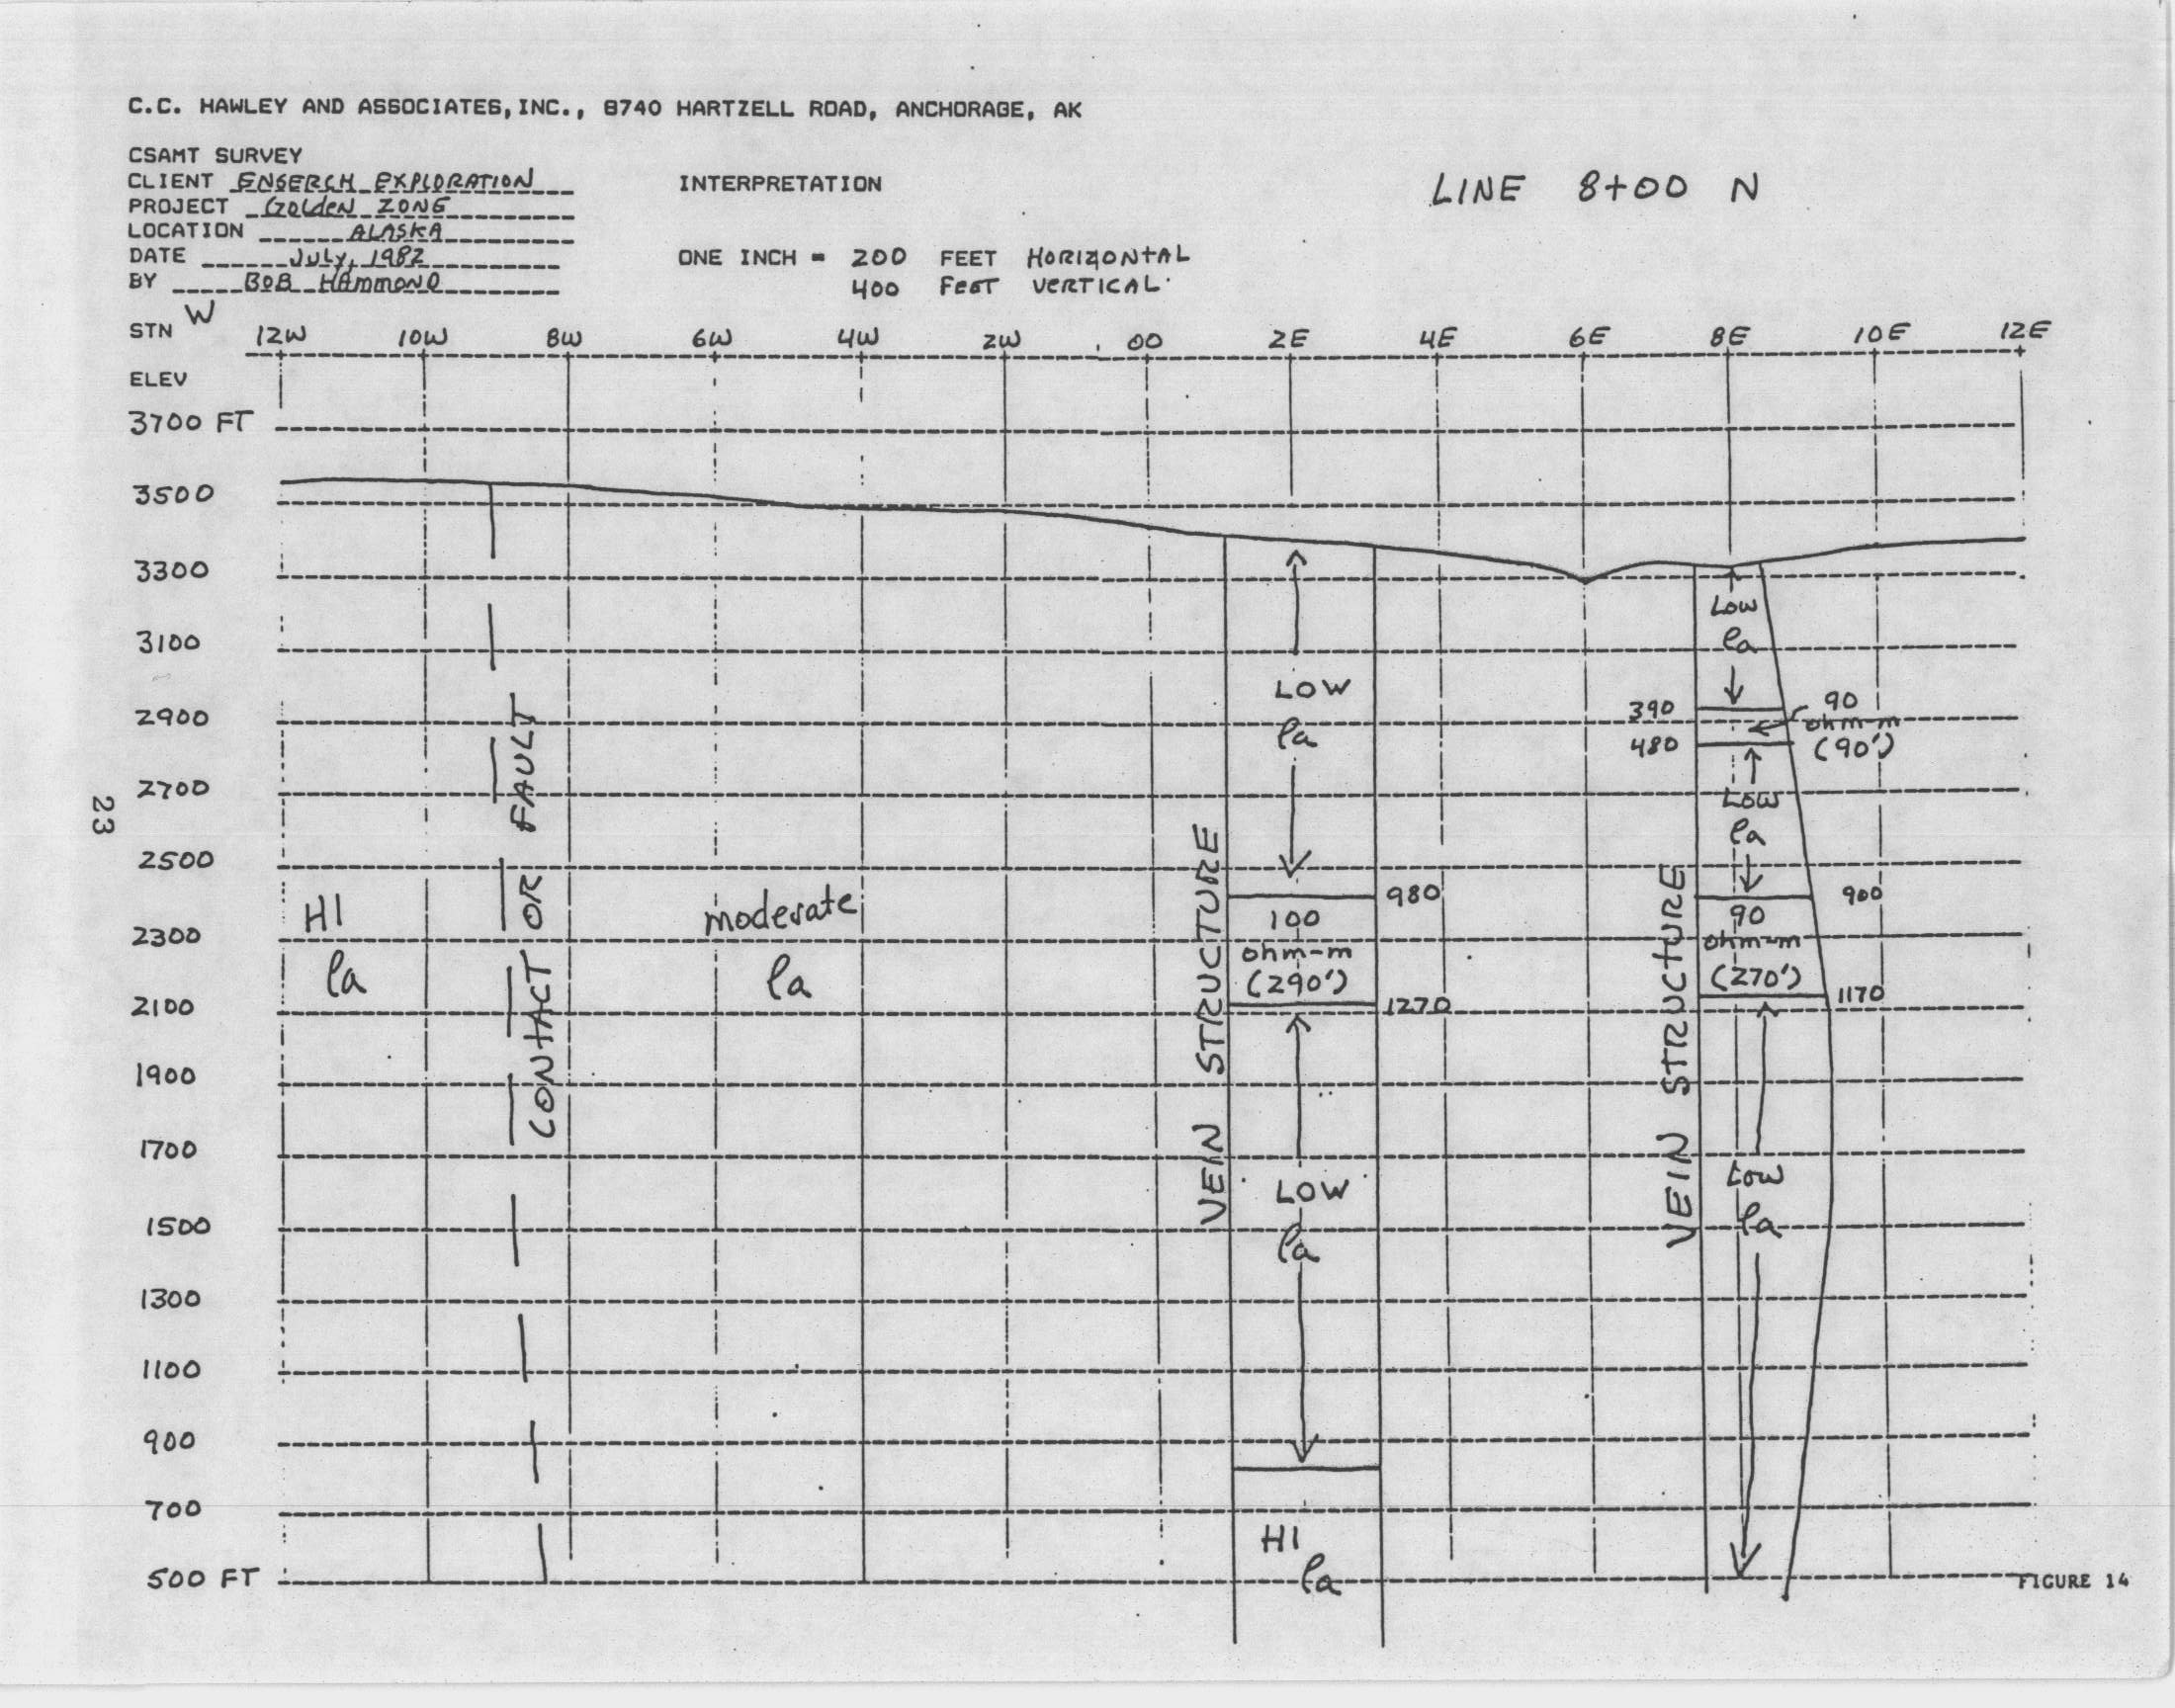 C.C. HAWLEY AND ASSOCIATES, INC., 8740 HARTZELL ROAD, ANCHORAGE, AK
CSAMT SURVEY
CLIENT ENSERCH EXPLORATION
PROJECT GOLDEN ZONE
LOCATION ALASKA
DATE July, 1982
BY BOB HAMMOND
INTERPRETATION
ONE INCH = 200 FEET HORIZONTAL
400 FEET VERTICAL
LINE 8+00 N
W
STN 12W 10W 8W 6W 4W 2W 00 2E 4E 6E 8E 10E 12E
ELEV
3700 FT
3500
3300
3100
2900
2700
2500
2300
2100
1900
1700
1500
1300
1100
900
700
500 FT
HI
ρa
CONTACT OR FAULT
moderate
ρa
VEIN STRUCTURE
LOW
ρa
980
100
ohm-m
(290')
1270
LOW
ρa
HI
ρa
VEIN STRUCTURE
LOW
ρa
390
90
ohm-m
(90')
480
LOW
ρa
900
90
ohm-m
(270')
1170
LOW
ρa
FIGURE 14
23